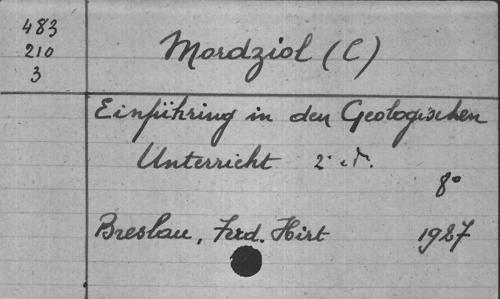 483
210
3
Mordziol (C)
Einführing in den Geologischen
Unterricht 2ᵉ éd.
8°
Breslau, Ferd. Hirt 1927